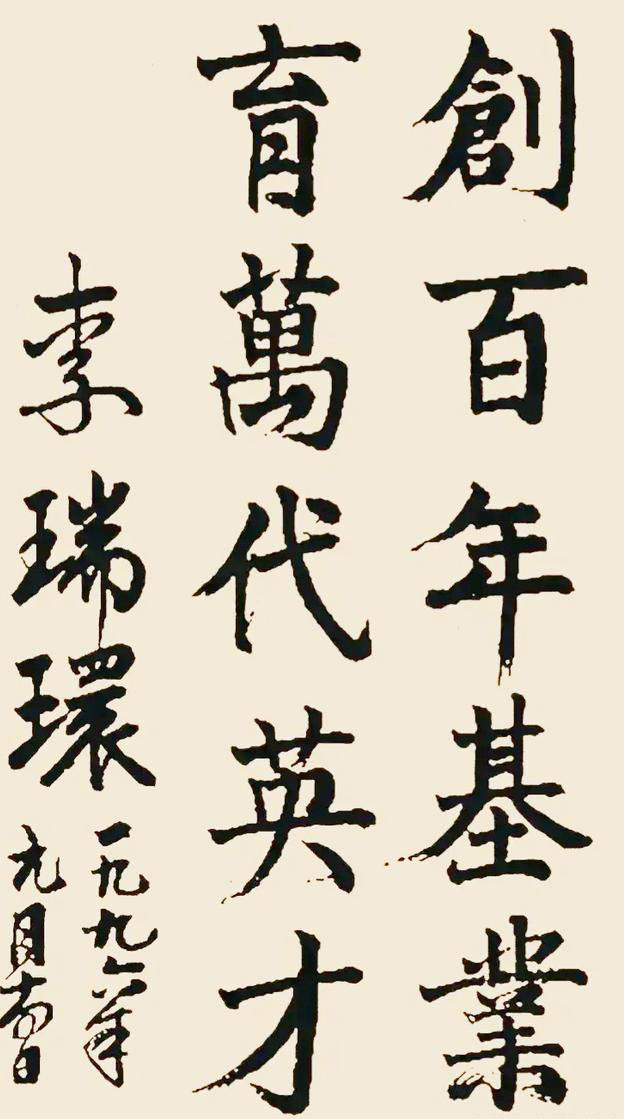 創百年基業
育萬代英才
李瑞環
一九九六年
九月 日